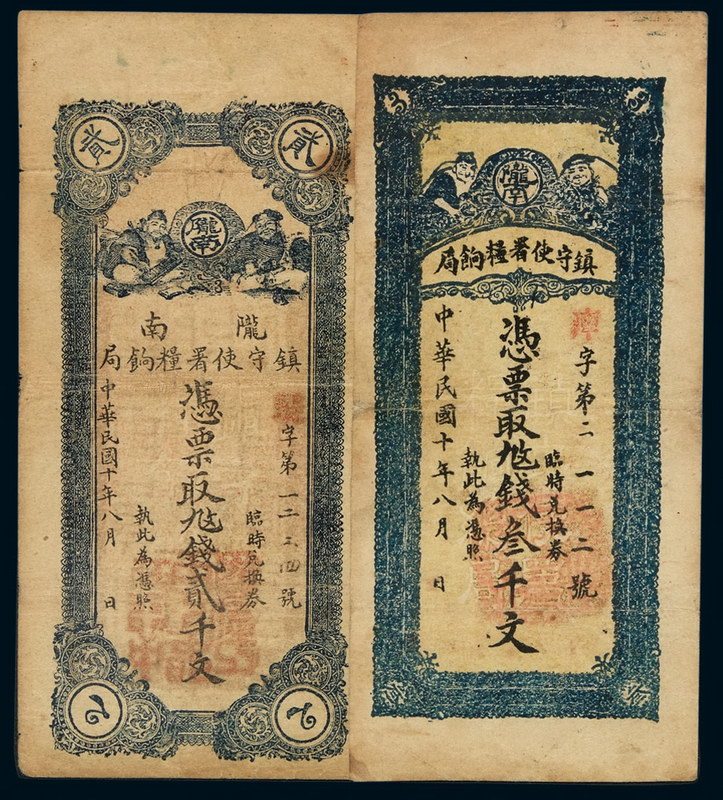 貳
貳
隴南
3
隴南
鎮守使署糧餉局
字第一二二四號
臨時兌換券
憑票取錢貳千文
執此為憑照
中華民國十年八月 日
2
2
3
3
隴南
鎮守使署糧餉局
字第二一一二號
臨時兌換券
憑票取錢叁千文
執此為憑照
中華民國十年八月 日